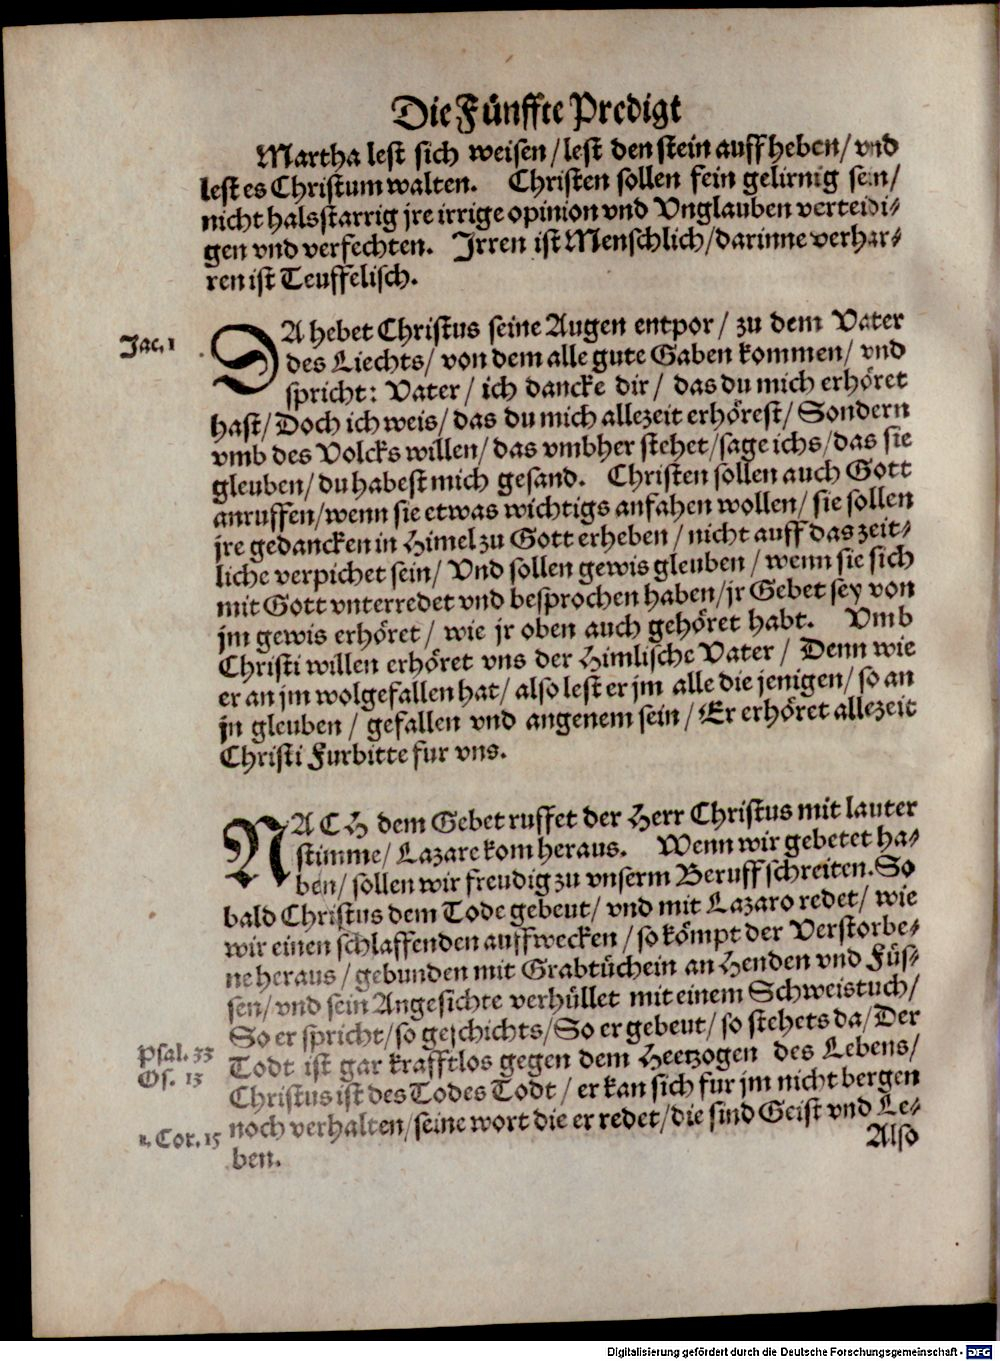 Die Fünffte Predigt
Martha lest sich weisen / lest den stein auffheben / vnd
lest es Christum walten. Christen sollen fein gelirnig sein /
nicht halsstarrig jre irrige opinion vnd Vnglauben verteidi-
gen vnd verfechten. Irren ist Menschlich / darinne verhar-
ren ist Teuffelisch.
Jac. 1
DA hebet Christus seine Augen entpor / zu dem Vater
des Liechts / von dem alle gute Gaben kommen / vnd
spricht: Vater / ich dancke dir / das du mich erhöret
hast / Doch ich weis / das du mich allezeit erhörest / Sondern
vmb des Volcks willen / das vmbher stehet / sage ichs / das sie
gleuben / du habest mich gesand. Christen sollen auch Gott
anruffen / wenn sie etwas wichtigs anfahen wollen / sie sollen
jre gedancken in Himel zu Gott erheben / nicht auff das zeit-
liche verpichet sein / Vnd sollen gewis gleuben / wenn sie sich
mit Gott vnterredet vnd besprochen haben / jr Gebet sey von
jm gewis erhöret / wie jr oben auch gehöret habt. Vmb
Christi willen erhöret vns der Himlische Vater / Denn wie
er an jm wolgefallen hat / also lest er jm alle die jenigen / so an
jn gleuben / gefallen vnd angenem sein / Er erhöret allezeit
Christi Furbitte fur vns.
NACH dem Gebet ruffet der Herr Christus mit lauter
stimme / Lazare kom heraus. Wenn wir gebetet ha-
ben / sollen wir freudig zu vnserm Beruff schreiten. So
bald Christus dem Tode gebeut / vnd mit Lazaro redet / wie
wir einen schlaffenden auffwecken / so kömpt der Verstorbe-
ne heraus / gebunden mit Grabtüchein an Henden vnd Füs-
sen / vnd sein Angesichte verhüllet mit einem Schweistuch /
So er spricht / so geschichts / So er gebeut / so stehets da / Der
Psal. 33
Todt ist gar krafftlos gegen dem Heetzogen des Lebens /
Os. 13
Christus ist des Todes Todt / er kan sich fur jm nicht bergen
1. Cor. 15
noch verhalten / seine wort die er redet / die sind Geist vnd Le-
ben.
Also
Digitalisierung gefördert durch die Deutsche Forschungsgemeinschaft - DFG